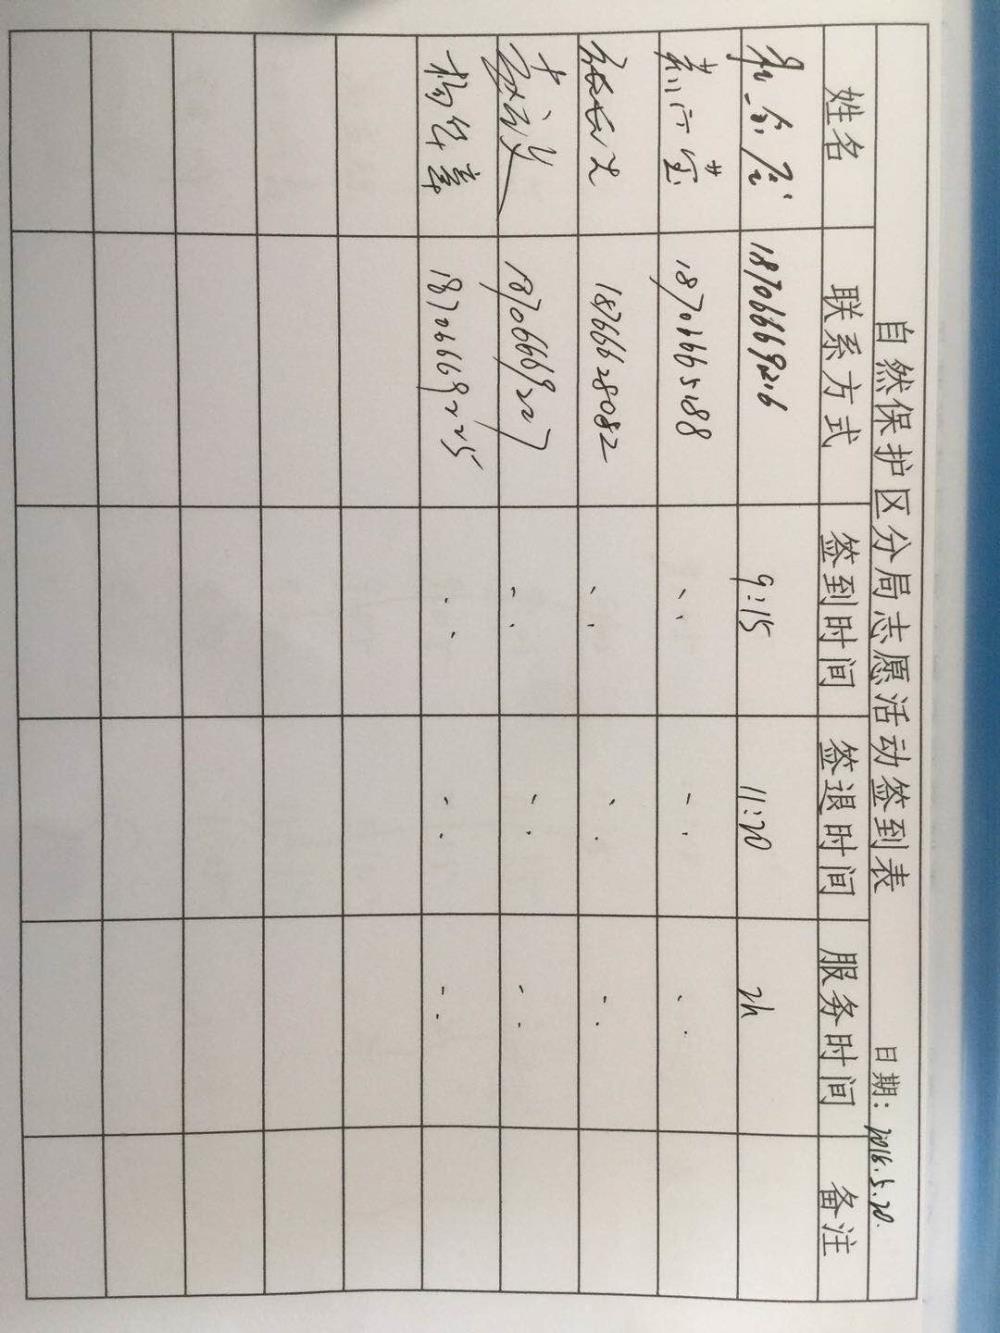 自然保护区分局志愿活动签到表
日期: 2018.5.20.
姓名 联系方式 签到时间 签退时间 服务时间 备注
18706669216 9:15 11:20 2h
18706665188 〃 〃 〃
18766628082 〃 〃 〃
18706669227 〃 〃 〃
18706669225 〃 〃 〃